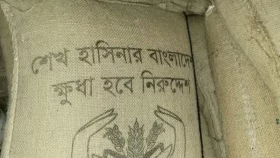 শেখ হাসিনার বাংলাদেশ
ক্ষুধা হবে নিরুদ্দেশ